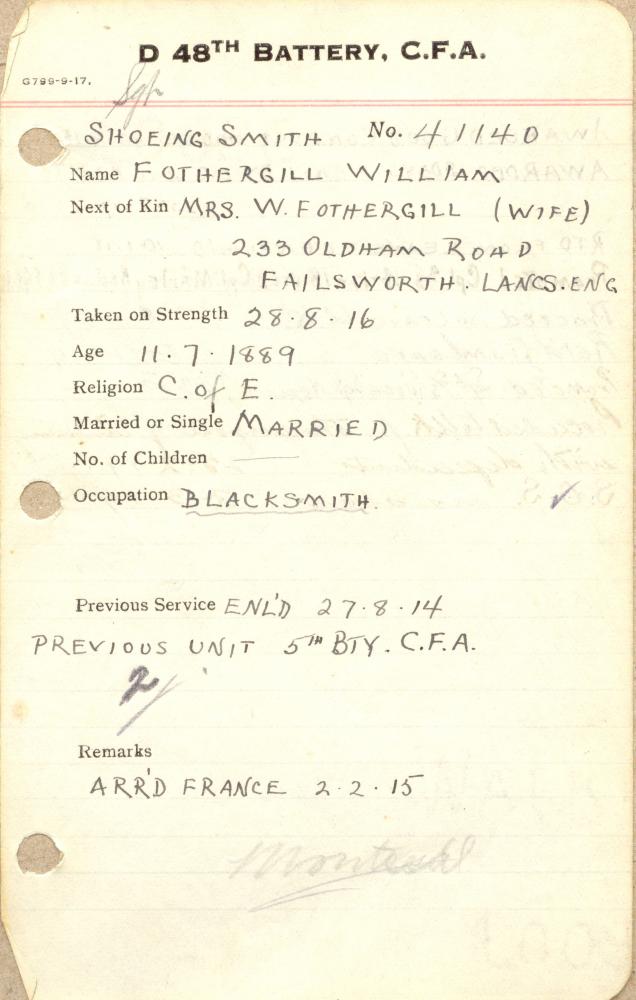 D 48TH BATTERY, C.F.A.
G799-9-17.
Sgt
SHOEING SMITH No. 41140
Name FOTHERGILL WILLIAM
Next of Kin MRS. W. FOTHERGILL (WIFE)
233 OLDHAM ROAD
FAILSWORTH. LANCS. ENG
Taken on Strength 28.8.16
Age 11.7.1889
Religion C. of E.
Married or Single MARRIED
No. of Children —
Occupation BLACKSMITH.
Previous Service ENL'D 27.8.14
PREVIOUS UNIT 5TH BTY. C.F.A.
2/
Remarks
ARR'D FRANCE 2.2.15
Montreal